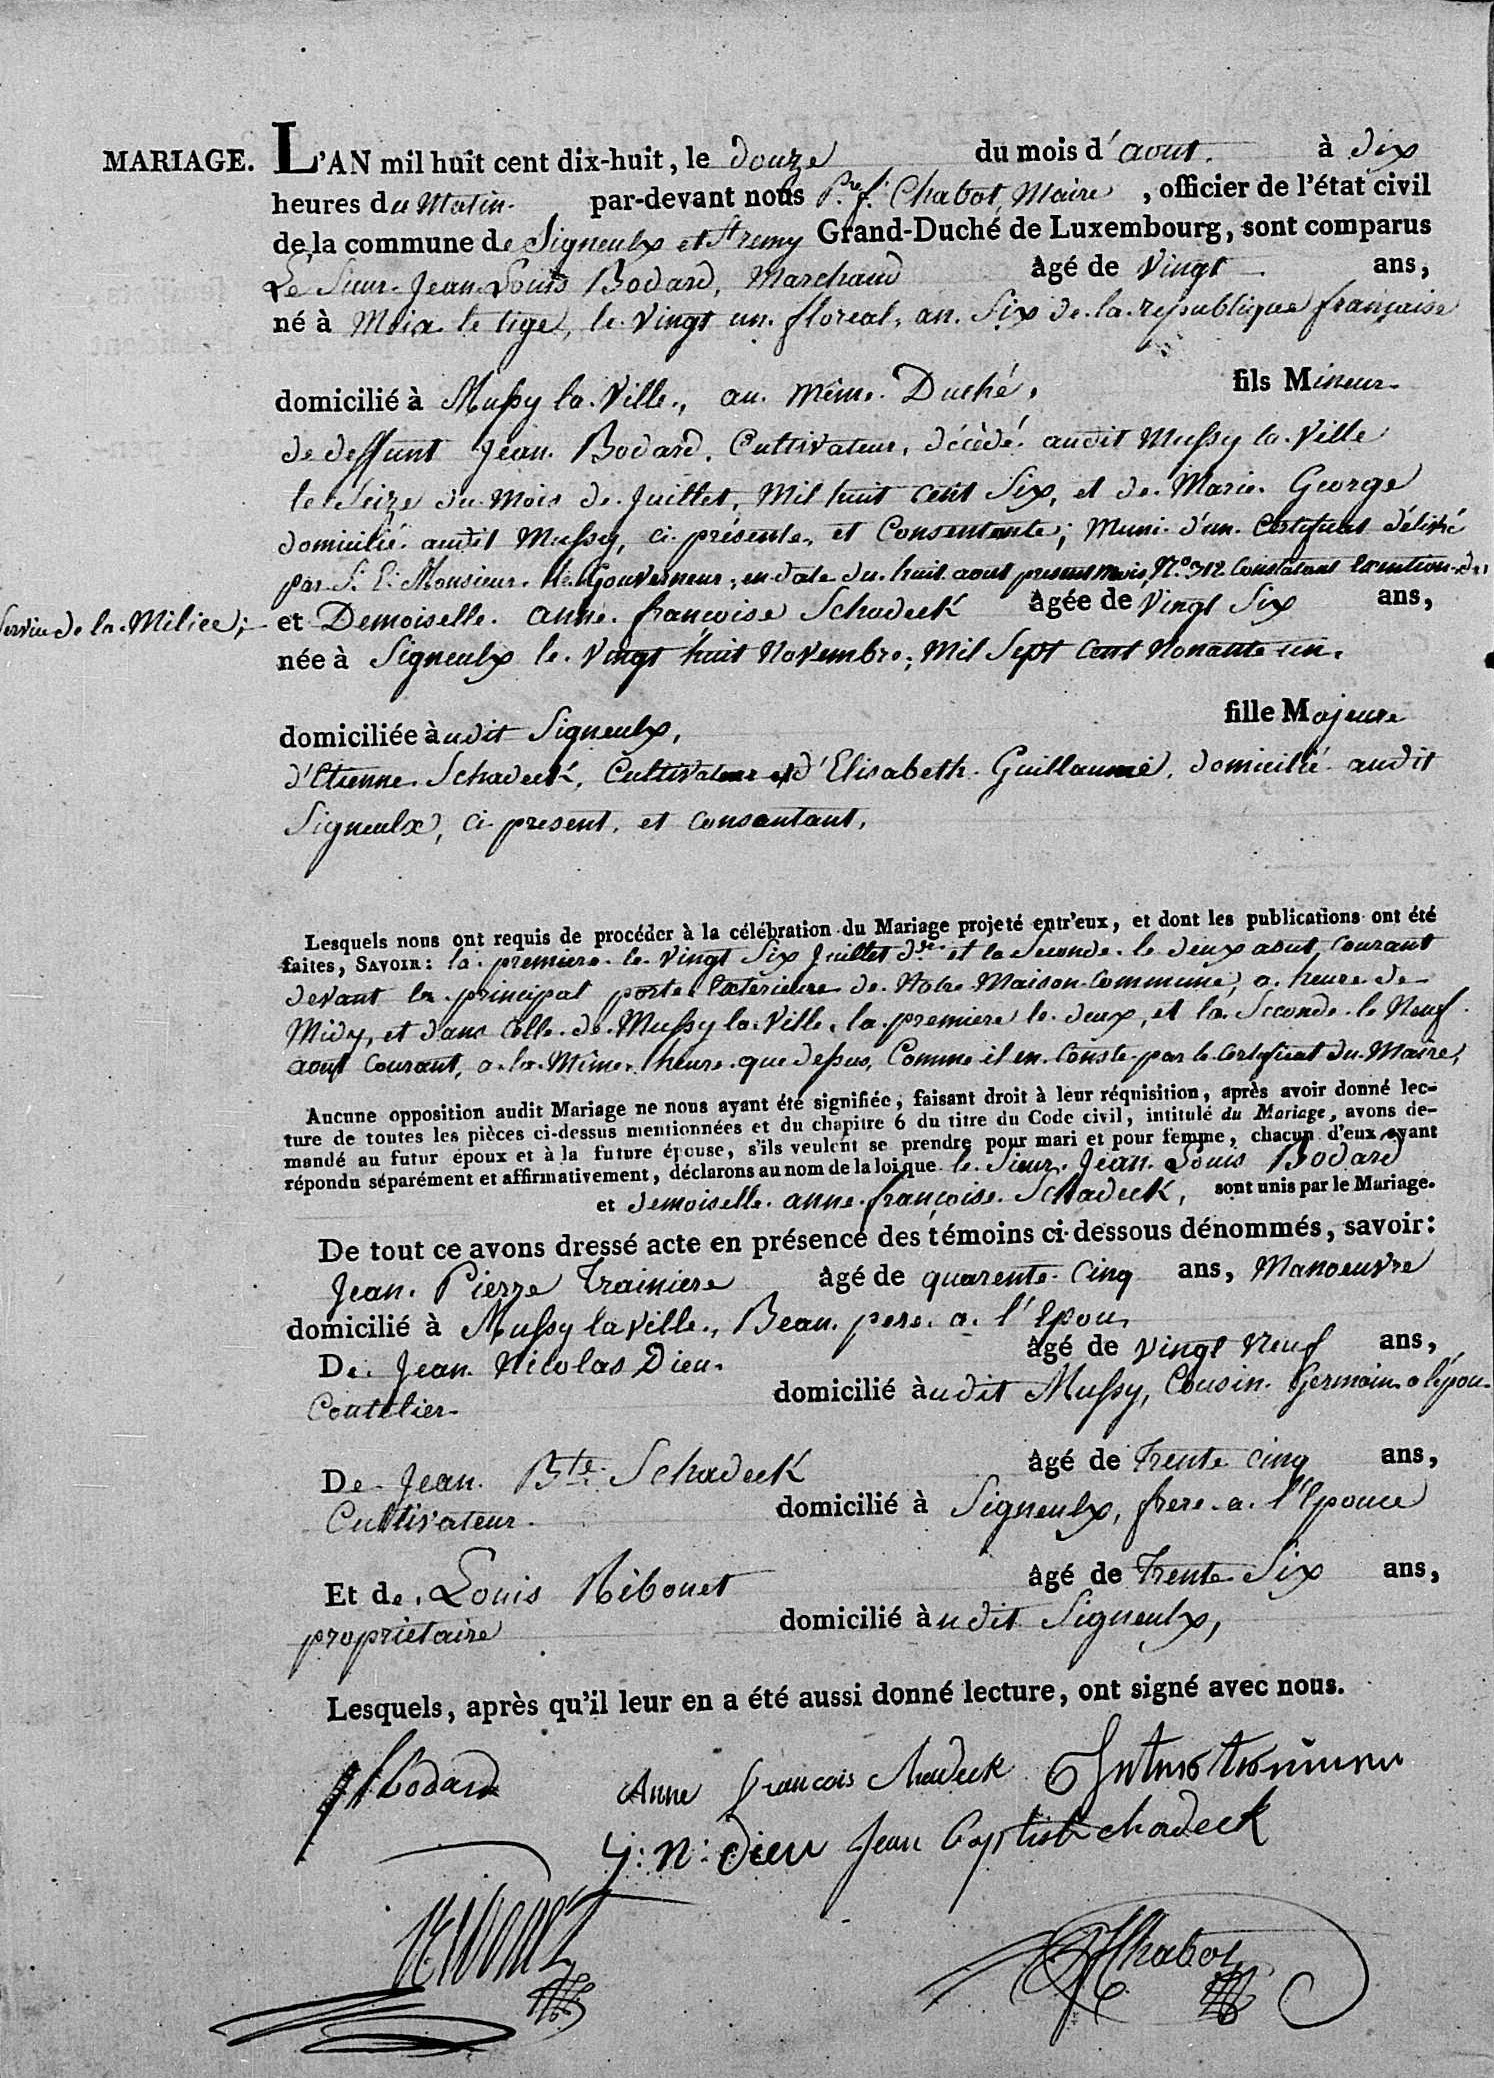 MARIAGE. L'AN mil huit cent dix-huit, le douze du mois d'aout. à dix
heures du Matin. par-devant nous P.re f. Chabot, Maire, officier de l'état civil
de la commune de Signeulx et St remy Grand-Duché de Luxembourg, sont comparus
Le Sieur Jean Louis Bodard, Marchand âgé de Vingt ans,
né à Meix le tige, le vingt un floreal, an Six de la republique française
domicilié à Mussy la Ville, au même Duché, fils Mineur
de deffunt Jean Bodard, Cultivateur, décédé audit Mussy la Ville
le Seize du Mois de Juillet, Mil huit cent Six, et de Marie George
domicilié audit Mussy, ci présente, et Consentante; Muni d'un Certificat délivré
par S. E. Monsieur le Gouverneur, en date du huit aout present mois, N.o 312 Constatant l'exention du
Service de la Milice; et Demoiselle anne françoise Schadeck agée de Vingt Six ans,
née à Signeulx le vingt huit Novembre, Mil Sept Cent Nonante un.
domiciliée audit Signeulx, fille Majeure
d'Etienne Schadeck, Cultivateur et d'Elisabeth Guillaume, domicilié audit
Signeulx, ci present, et consentant,
Lesquels nous ont requis de procéder à la célébration du Mariage projeté entr'eux, et dont les publications ont été
faites, SAVOIR: la premiere le vingt Six Juillet d.er et la Seconde le deux aout courant
devant la principal porte Exterieure de Notre Maison Commune, a heure de
Midy, et dans Celle de Mussy la Ville, la premiere le deux, et la Seconde le Neuf
aout Courant, a la Même heure que dessus, Comme il en Conste par le Certificat du Maire,
Aucune opposition audit Mariage ne nous ayant été signifiée, faisant droit à leur réquisition, après avoir donné lec-
ture de toutes les pièces ci-dessus mentionnées et du chapitre 6 du titre du Code civil, intitulé du Mariage, avons de-
mandé au futur époux et à la future épouse, s'ils veulent se prendre pour mari et pour femme, chacun d'eux ayant
répondu séparément et affirmativement, déclarons au nom de la loi que le Sieur Jean Louis Bodard
et demoiselle anne françoise Schadeck, sont unis par le Mariage.
De tout ce avons dressé acte en présence des témoins ci-dessous dénommés, savoir:
Jean Pierre Trainiere âgé de quarente Cinq ans, Manoeuvre
domicilié à Mussy la Ville, Beau pere a l'Epou,
De Jean Nicolas Dieu âgé de vingt Neuf ans,
Coutelier domicilié audit Mussy, Cousin Germain a l'épou
De Jean B.te Schadeck âgé de Trente cinq ans,
Cultivateur domicilié à Signeulx, frere a l'Epouce
Et de Louis Ribonet âgé de Trente Six ans,
propriétaire domicilié audit Signeulx,
Lesquels, après qu'il leur en a été aussi donné lecture, ont signé avec nous.
Bodard Anne francois chadeck
J: N: dieu Jean baptist chadeck
Chabot